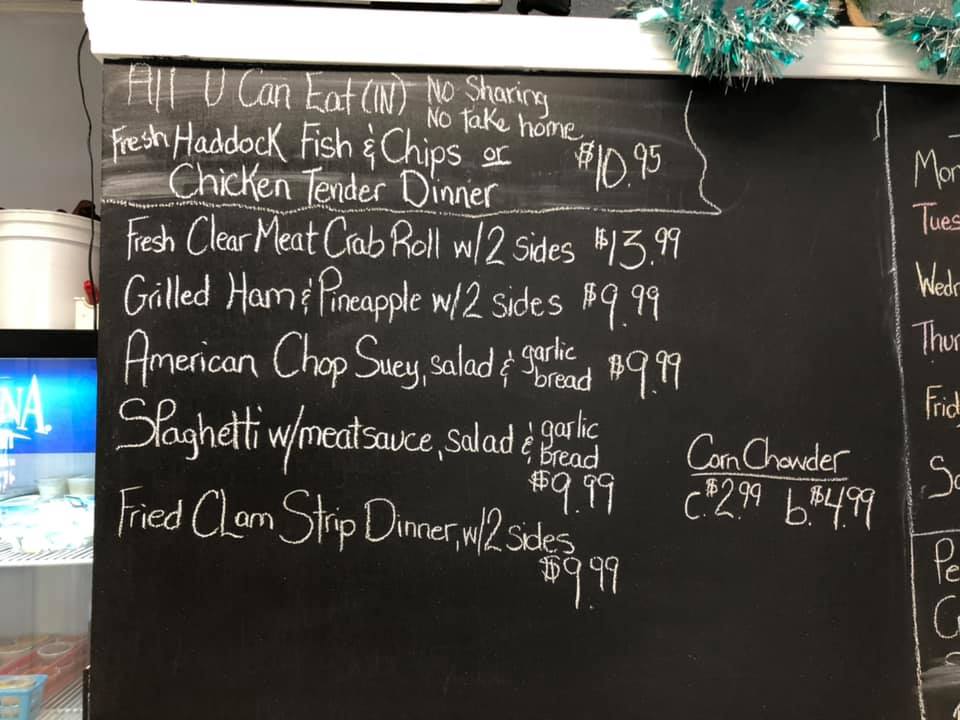 All U Can Eat (IN) No Sharing
No take home
Fresh Haddock Fish & Chips or $10.95
Chicken Tender Dinner
Fresh Clear Meat Crab Roll w/2 Sides $13.99
Grilled Ham & Pineapple w/2 sides $9.99
American Chop Suey, salad & garlic bread $9.99
Spaghetti w/meatsauce, salad & garlic bread
$9.99
Fried Clam Strip Dinner, w/2 sides
$9.99
Corn Chowder
c. $2.99 b. $4.99
Mon
Tues
Wedn
Thur
Frid
Sa
Pe
NA